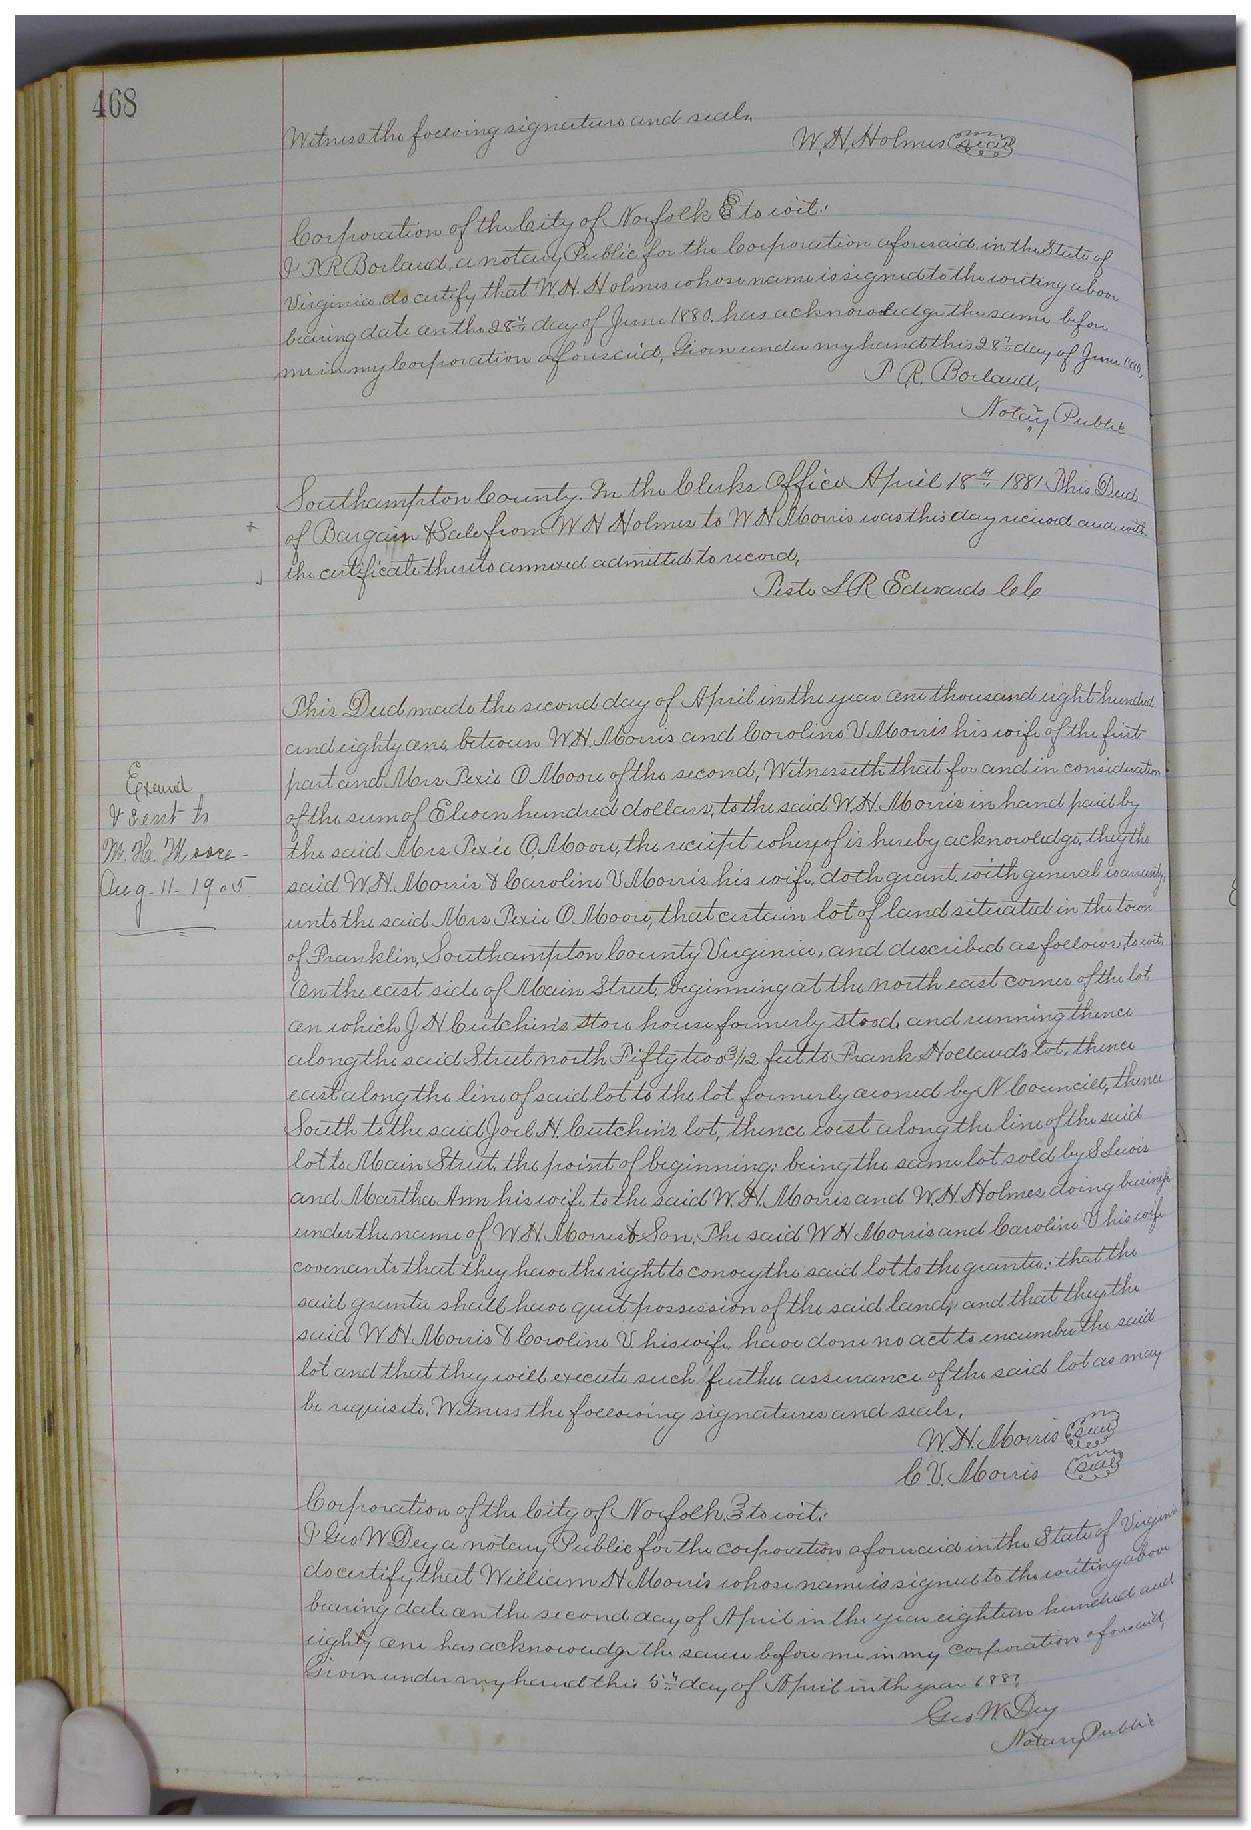 468
Witness the following signature and seal.
W. H. Holmes (seal)
Corporation of the City of Norfolk to wit:
I T R Borland, a notary Public for the Corporation aforesaid, in the State of
Virginia do certify that W. H. Holmes whose name is signed to the writing above
bearing date on the 28th day of June 1880. has acknowledge the same before
me in my Corporation aforesaid, Given under my hand this 28th day of June 1880,
T. R. Borland,
Notary Public
Southampton County. In the Clerks Office April 18th, 1881 This Deed
of Bargain & Sale from W H Holmes to W H Morris was this day received and with
the certificate thereto annexed admitted to record,
Teste L R Edwards CC
This Deed made the second day of April in the year one thousand eight hundred
and eighty one, between W. H. Morris and Caroline V Morris his wife of the first
part and Mrs Pexie O. Moore of the second, Witnesseth that for and in consideration
of the sum of Eleven hundred dollars, to the said W. H. Morris in hand paid by
the said Mrs Pexie O, Moore, the receipt whereof is hereby acknowledge, they the
said W. H. Morris & Caroline V Morris his wife, doth grant with general warranty,
unto the said Mrs Pexie O. Moore, that certain lot of land situated in the town
of Franklin, Southampton County Virginia, and described as follows, to wit,
On the east side of Main Street, beginning at the north east corner of the lot
on which J H Cutchin's store house formerly stood, and running thence
along the said Street north Fifty two 3/12 feet to Frank Holland's lot, thence
east along the line of said lot to the lot formerly owned by N Councill, thence
South to the said Joel H. Cutchin's lot, thence west along the line of the said
lot to Main Street, the point of beginning: being the same lot sold by S Lewis
and Martha Ann his wife to the said W. H. Morris and W. H. Holmes doing business
under the name of W H. Morris & Son, The said W H Morris and Caroline V his wife
covenants that they have the right to convey the said lot to the grantee; that the
said grantee shall have quit possession of the said land; and that they the
said W H Morris & Caroline V. his wife, have done no act to encumber the said
lot and that they will execute such further assurance of the said lot as may
be requisite. Witness the following signatures and seals.
W. H. Morris (seal)
C. V. Morris (seal)
Corporation of the City of Norfolk, to wit:
I Geo W. Dey a notary Public for the corporation aforesaid in the State of Virginia
do certify that William H Morris whose name is signed to the writing above
bearing date on the second day of April in the year eighteen hundred and
eighty one has acknowedge the same before me, in my corporation aforesaid,
Given under my hand this 5th day of April in th year 1881,
Geo W. Dey
Notary Public
Examd
& sent to
M. H. Moore -
Aug. 11 - 1905